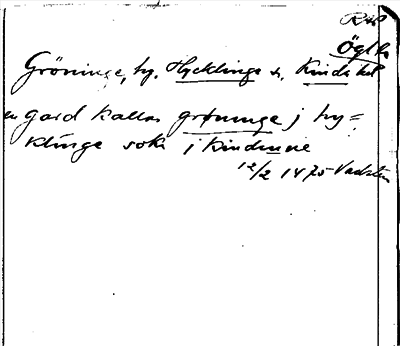 RAP
Ögtl.
Gröninge, by, Hycklinge s., Kinda hd
en gard kallas grøninge j hy=
klinge sokn i kindinne
12/2 1475 Vadsten